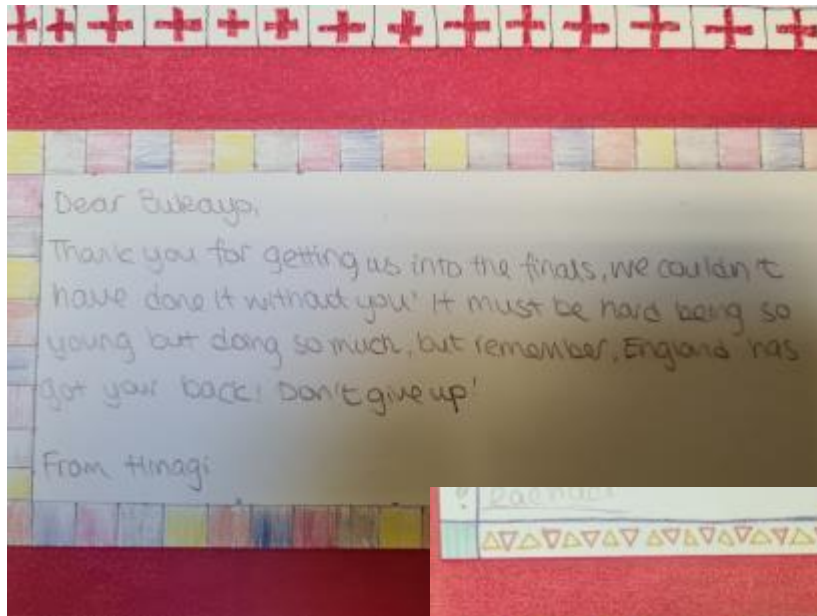 Dear Bukayo,
Thank you for getting us into the finals, we couldn't
have done it without you! It must be hard being so
young but doing so much, but remember, England has
got your back! Don't give up!
From Hinagi